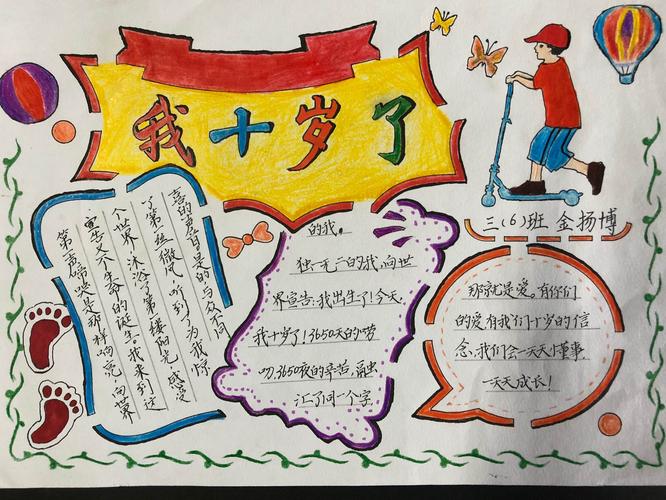 我十岁了
三(6)班 金扬博
第一声啼哭是那样响亮,向世界
宣告又一个生命的诞生。我来到这
个世界,沐浴了第一缕阳光,感受
了第一丝微风,听到了为我惊
喜的声音。是的,与众不同
的我。
独一无二的我,向世
界宣告:我出生了!今天,
我十岁了!3650天的
3650夜的辛苦,融
汇了同一个字
那就是爱。有你们
的爱,有我们十岁的信
念,我们会一天天懂事
一天天成长!